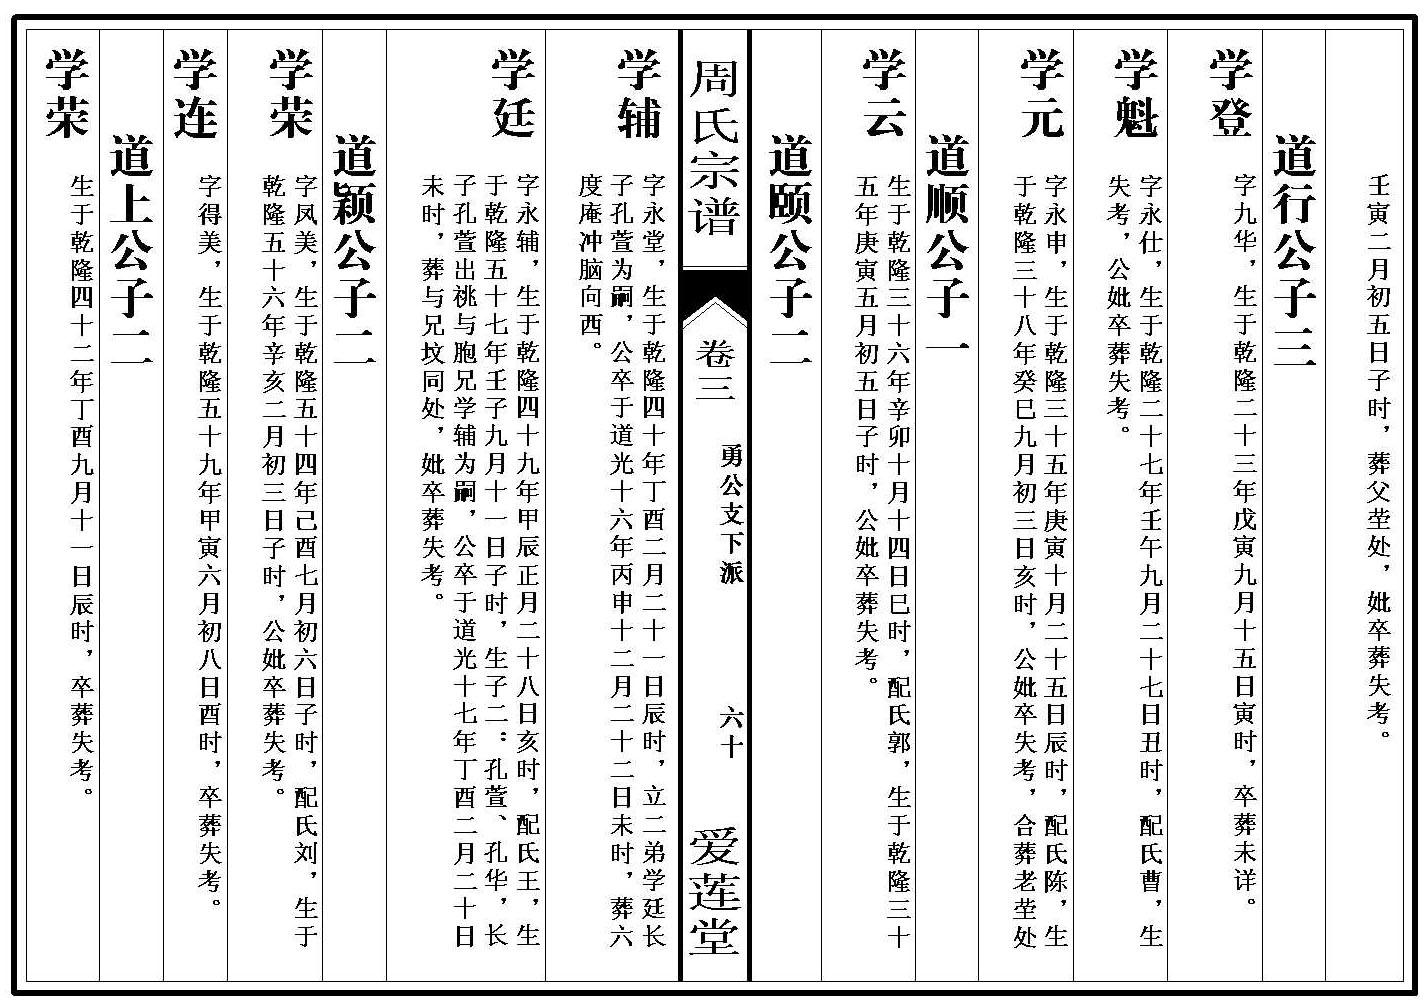 壬寅二月初五日子时，葬父茔处，妣卒葬失考。
道行公子三
学登
字九华，生于乾隆二十三年戊寅九月十五日寅时，卒葬未详。
学魁
字永仕，生于乾隆二十七年壬午九月二十七日丑时，配氏曹，生
失考，公妣卒葬失考。
学元
字永申，生于乾隆三十五年庚寅十月二十五日辰时，配氏陈，生
于乾隆三十八年癸巳九月初三日亥时，公妣卒失考，合葬老茔处
道顺公子一
学云
生于乾隆三十六年辛卯十月十四日巳时，配氏郭，生于乾隆三十
五年庚寅五月初五日子时，公妣卒葬失考。
道颐公子二
周氏宗谱
卷三
勇公支下派
六十
爱莲堂
学辅
字永堂，生于乾隆四十年丁酉二月二十一日辰时，立二弟学廷长
子孔萱为嗣，公卒于道光十六年丙申十二月二十二日未时，葬六
度庵冲脑向西。
学廷
字永辅，生于乾隆四十九年甲辰正月二十八日亥时，配氏王，生
于乾隆五十七年壬子九月十一日子时，生子二：孔萱、孔华，长
子孔萱出祧与胞兄学辅为嗣，公卒于道光十七年丁酉二月二十日
未时，葬与兄坟同处，妣卒葬失考。
道颖公子二
学荣
字凤美，生于乾隆五十四年己酉七月初六日子时，配氏刘，生于
乾隆五十六年辛亥二月初三日子时，公妣卒葬失考。
学连
字得美，生于乾隆五十九年甲寅六月初八日酉时，卒葬失考。
道上公子二
学荣
生于乾隆四十二年丁酉九月十一日辰时，卒葬失考。